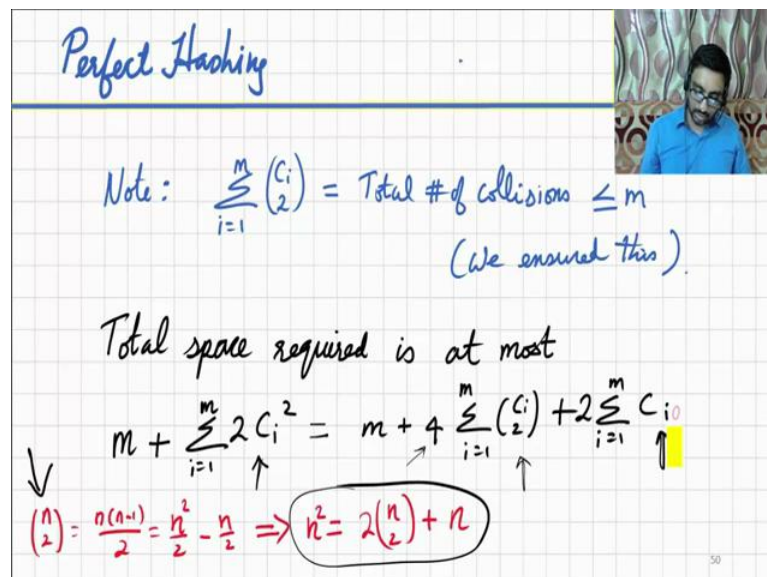 Perfect Hashing
Note: \sum_{i=1}^{m} \binom{C_i}{2} = Total # of collisions ≤ m
(We ensured this).
Total space required is at most
m + \sum_{i=1}^{m} 2 C_i^2 = m + 4 \sum_{i=1}^{m} \binom{C_i}{2} + 2 \sum_{i=1}^{m} C_i
\binom{n}{2} = \frac{n(n-1)}{2} = \frac{n^2}{2} - \frac{n}{2} ⇒ n^2 = 2\binom{n}{2} + n
50